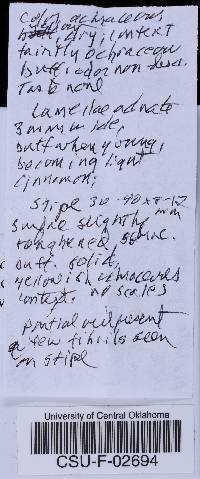 Color ochraceous
buff, dry, context
faintly ochraceous
buff; odor none
Taste none
Lamellae adnate
3 mm wide,
buff when young,
becoming light
cinnamon;
Stipe 30-90 x 8-12
mm
surface slightly
roughened, same.
buff. solid,
yellowish ochraceous
context, no scales
partial veil present
a few fibrils seen
on stipe
University of Central Oklahoma
CSU-F-02694